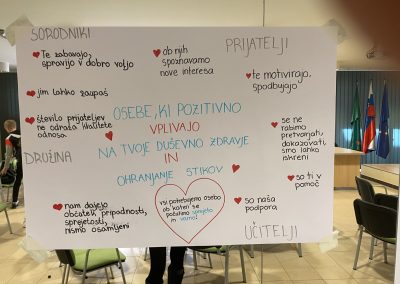 SORODNIKI
Te zabavajo,
spravijo v dobro voljo
ob njih
spoznavamo
nove interesa
PRIJATELJI
te motivirajo,
spodbujajo
jim lahko zaupaš
število prijateljev
ne odraža kvalitete
odnosa
OSEBE, KI POZITIVNO
VPLIVAJO
NA TVOJE DUŠEVNO ZDRAVJE
IN
OHRANJANJE STIKOV
se ne
rabimo
pretvarjati,
dokazovati,
smo lahko
iskreni
DRUŽINA
nam dajejo
občutek pripadnosti,
sprejetosti,
nismo osamljeni
vsi potrebujemo osebo
ob kateri se
počutimo sprejeto
in varno!
so ti v
pomoč
so naša
podpora
UČITELJI